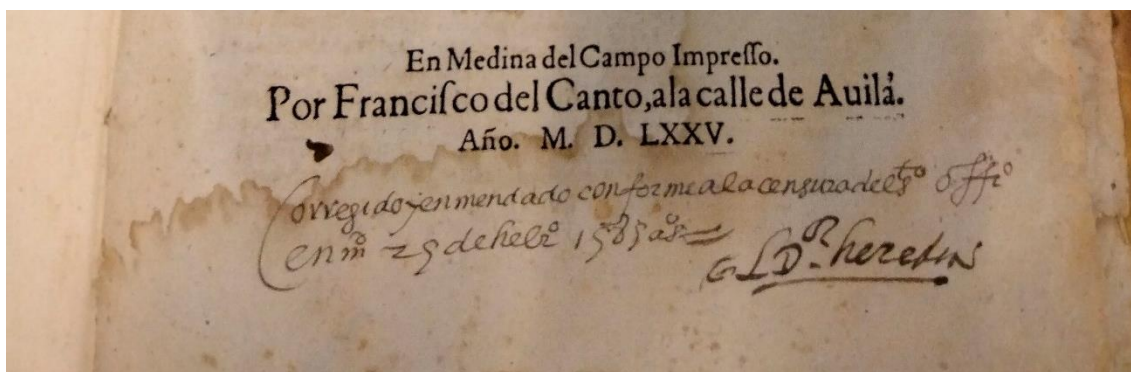 En Medina del Campo Impreſſo.
Por Franciſco del Canto, a la calle de Auila.
Año. M. D. LXXV.
Corregido y enmendado conforme a la censura del sto offio
en 25 de hebro 1585 aos
El Dor heredia